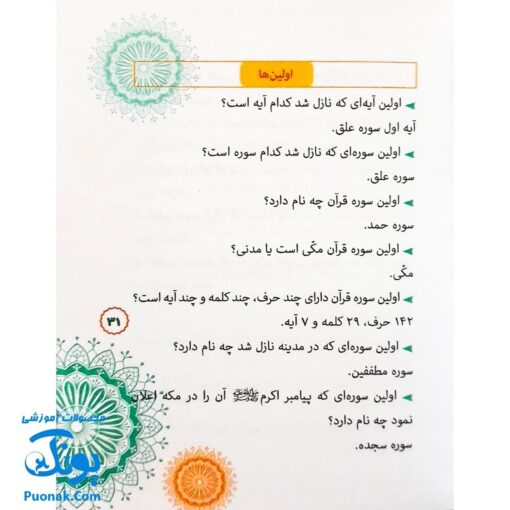 اولین‌ها
اولین آیه‌ای که نازل شد کدام آیه است؟
آیه اول سوره علق.
اولین سوره‌ای که نازل شد کدام سوره است؟
سوره علق.
اولین سوره قرآن چه نام دارد؟
سوره حمد.
اولین سوره قرآن مکّی است یا مدنی؟
مکّی.
اولین سوره قرآن دارای چند حرف، چند کلمه و چند آیه است؟
۱۴۲ حرف، ۲۹ کلمه و ۷ آیه.
۳۱
اولین سوره‌ای که در مدینه نازل شد چه نام دارد؟
سوره مطففین.
اولین سوره‌ای که پیامبر اکرم ﷺ آن را در مکه اعلان
نمود چه نام دارد؟
سوره سجده.
محصولات آموزشی
پونک
Puonak.Com